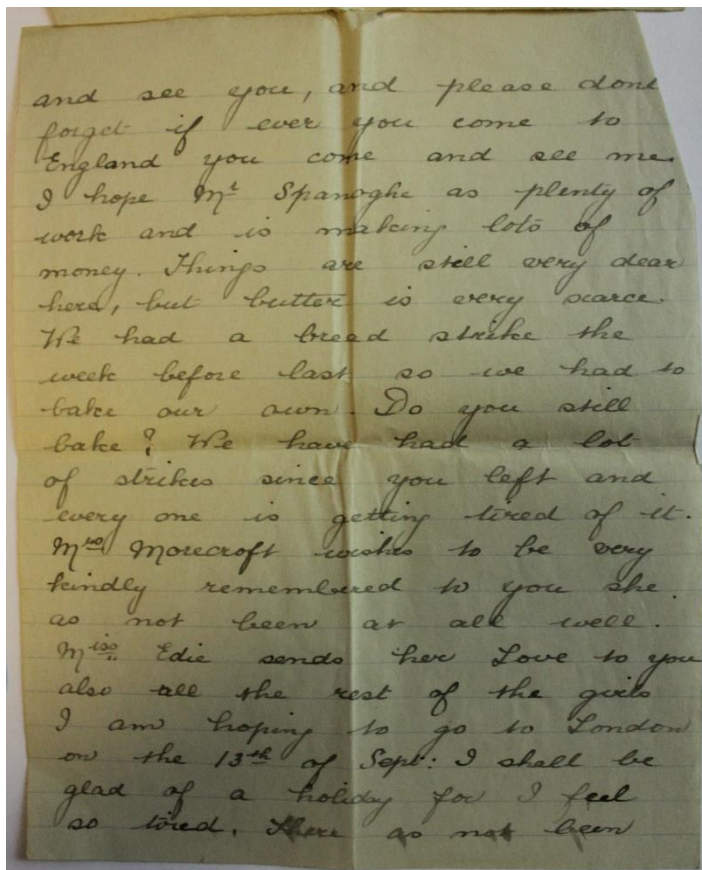 and see you, and please dont
forget if ever you come to
England you come and see me.
I hope Mr Spanoghe as plenty of
work and is making lots of
money. Things are still very dear
here, but butter is very scarce.
We had a bread strike the
week before last so we had to
bake our own. Do you still
bake? We have had a lot
of strikes since you left and
every one is getting tired of it.
Mrs Morecroft wishes to be very
kindly remembered to you she
as not been at all well.
Miss Edie sends her Love to you
also all the rest of the girls
I am hoping to go to London
on the 13th of Sept: I shall be
glad of a holiday for I feel
so tired. There as not been